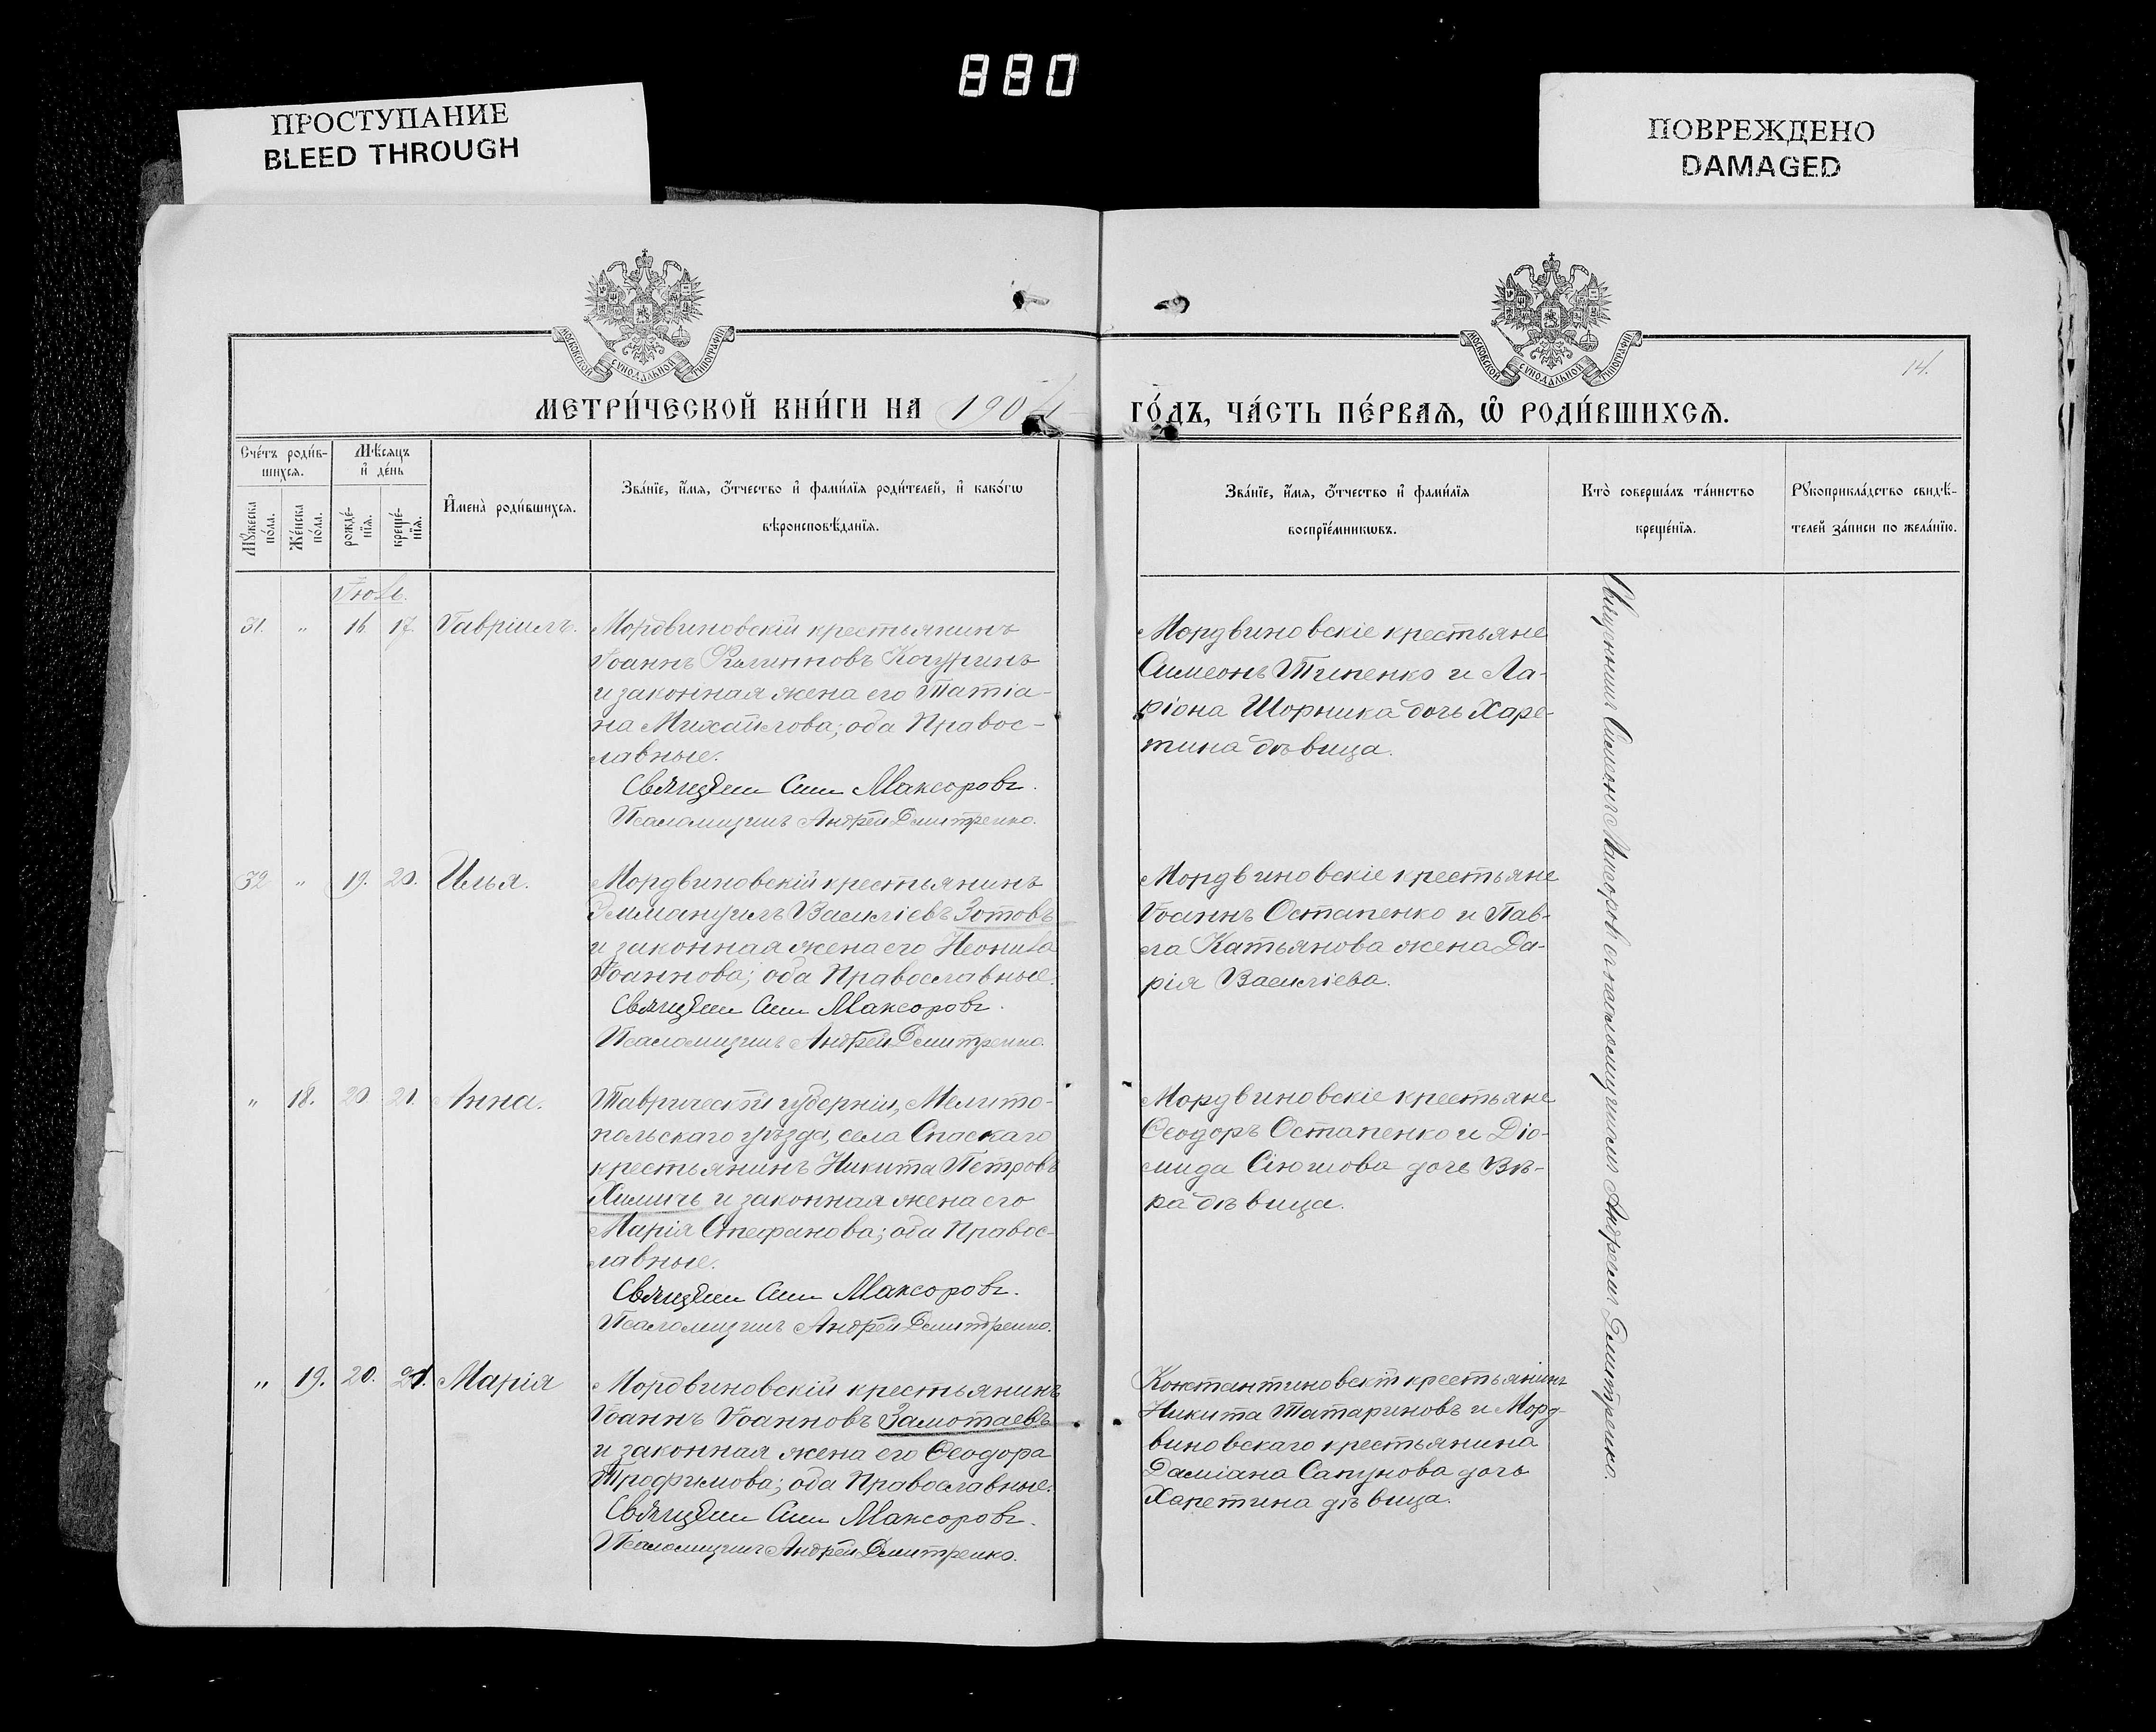 880
ПРОСТУПАНИЕ
BLEED THROUGH
ПОВРЕЖДЕНО
DAMAGED
МОСКОВСКОЙ СѴНОДАЛЬНОЙ ТИПОГРАФІИ
МОСКОВСКОЙ СѴНОДАЛЬНОЙ ТИПОГРАФІИ
14.
МЕТРИ́ЧЕСКОЙ КНИ́ГИ НА 1904 ГО́ДЪ, ЧА́СТЬ ПЕ́РВАѦ, Ѽ РОДИ́ВШИХСѦ.
Сче́тъ роди́в-
шихсѧ.
Мꙋ́жеска по́ла.
Же́нска по́ла.
Мѣ́сѧцъ
и҆ де́нь
рожде́-
нїѧ.
креще́-
нїѧ.
И҆мена̀ роди́вшихсѧ.
Зва́нїе, и҆́мѧ, ѻ҆́тчество и҆ фами́лїѧ роди́телей, и҆ како́гѡ
вѣроисповѣ́данїѧ.
Зва́нїе, и҆́мѧ, ѻ҆́тчество и҆ фами́лїѧ
воспрїе́мникѡвъ.
Кто̀ соверша́лъ та́инство
креще́нїѧ.
Рꙋкоприкла́дство свидѣ́-
телей за́писи по жела́нїю.
Іюль.
31. " 16. 17. Гавріилъ.
Мордвиновскій крестьянинъ
Іоаннъ Кочугинъ
и законная жена его Татіа-
на Михайлова; оба Правос-
лавные.
Сим Максоровъ.
Псаломщикъ Андрей Дмитренко.
Мордвиновскіе крестьяне
Симеонъ Типенко и Ла-
ріона Шорника дочь Харе-
тина дѣвица.
32 " 19. 20. Илья.
Мордвиновскій крестьянинъ
Эммануилъ Василіевъ Зотовъ
и законная жена его Неонила
Іоаннова; оба Православные.
Сим Максоровъ.
Псаломщикъ Андрей Дмитренко.
Мордвиновскіе крестьяне
Іоаннъ Остапенко и Пав-
ла Катьянова жена Да-
рія Василіева.
" 18. 20. 21. Анна.
Таврической губерніи, Мелито-
польскаго уѣзда, села Спаскаго
крестьянинъ Никита Петровъ
Химичъ и законная жена его
Марія Стефанова; оба Правос-
лавные.
Сим Максоровъ.
Псаломщикъ Андрей Дмитренко.
Мордвиновскіе крестьяне
Ѳеодоръ Остапенко и Діо-
мида дочь Вѣ-
ра дѣвица.
" 19. 20. 21. Марія
Мордвиновскій крестьянинъ
Іоаннъ Іоанновъ Замотаевъ
и законная жена его Ѳеодора
Трофимова; оба Православные.
Сим Максоровъ.
Псаломщикъ Андрей Дмитренко.
Константиновскій крестьянинъ
Никита Татариновъ и Морд-
виновскаго крестьянина
Даміана Сапунова дочь
Харетина дѣвица.
Священникъ Симеонъ Максоровъ съ псаломщикомъ Андреемъ Дмитренко.